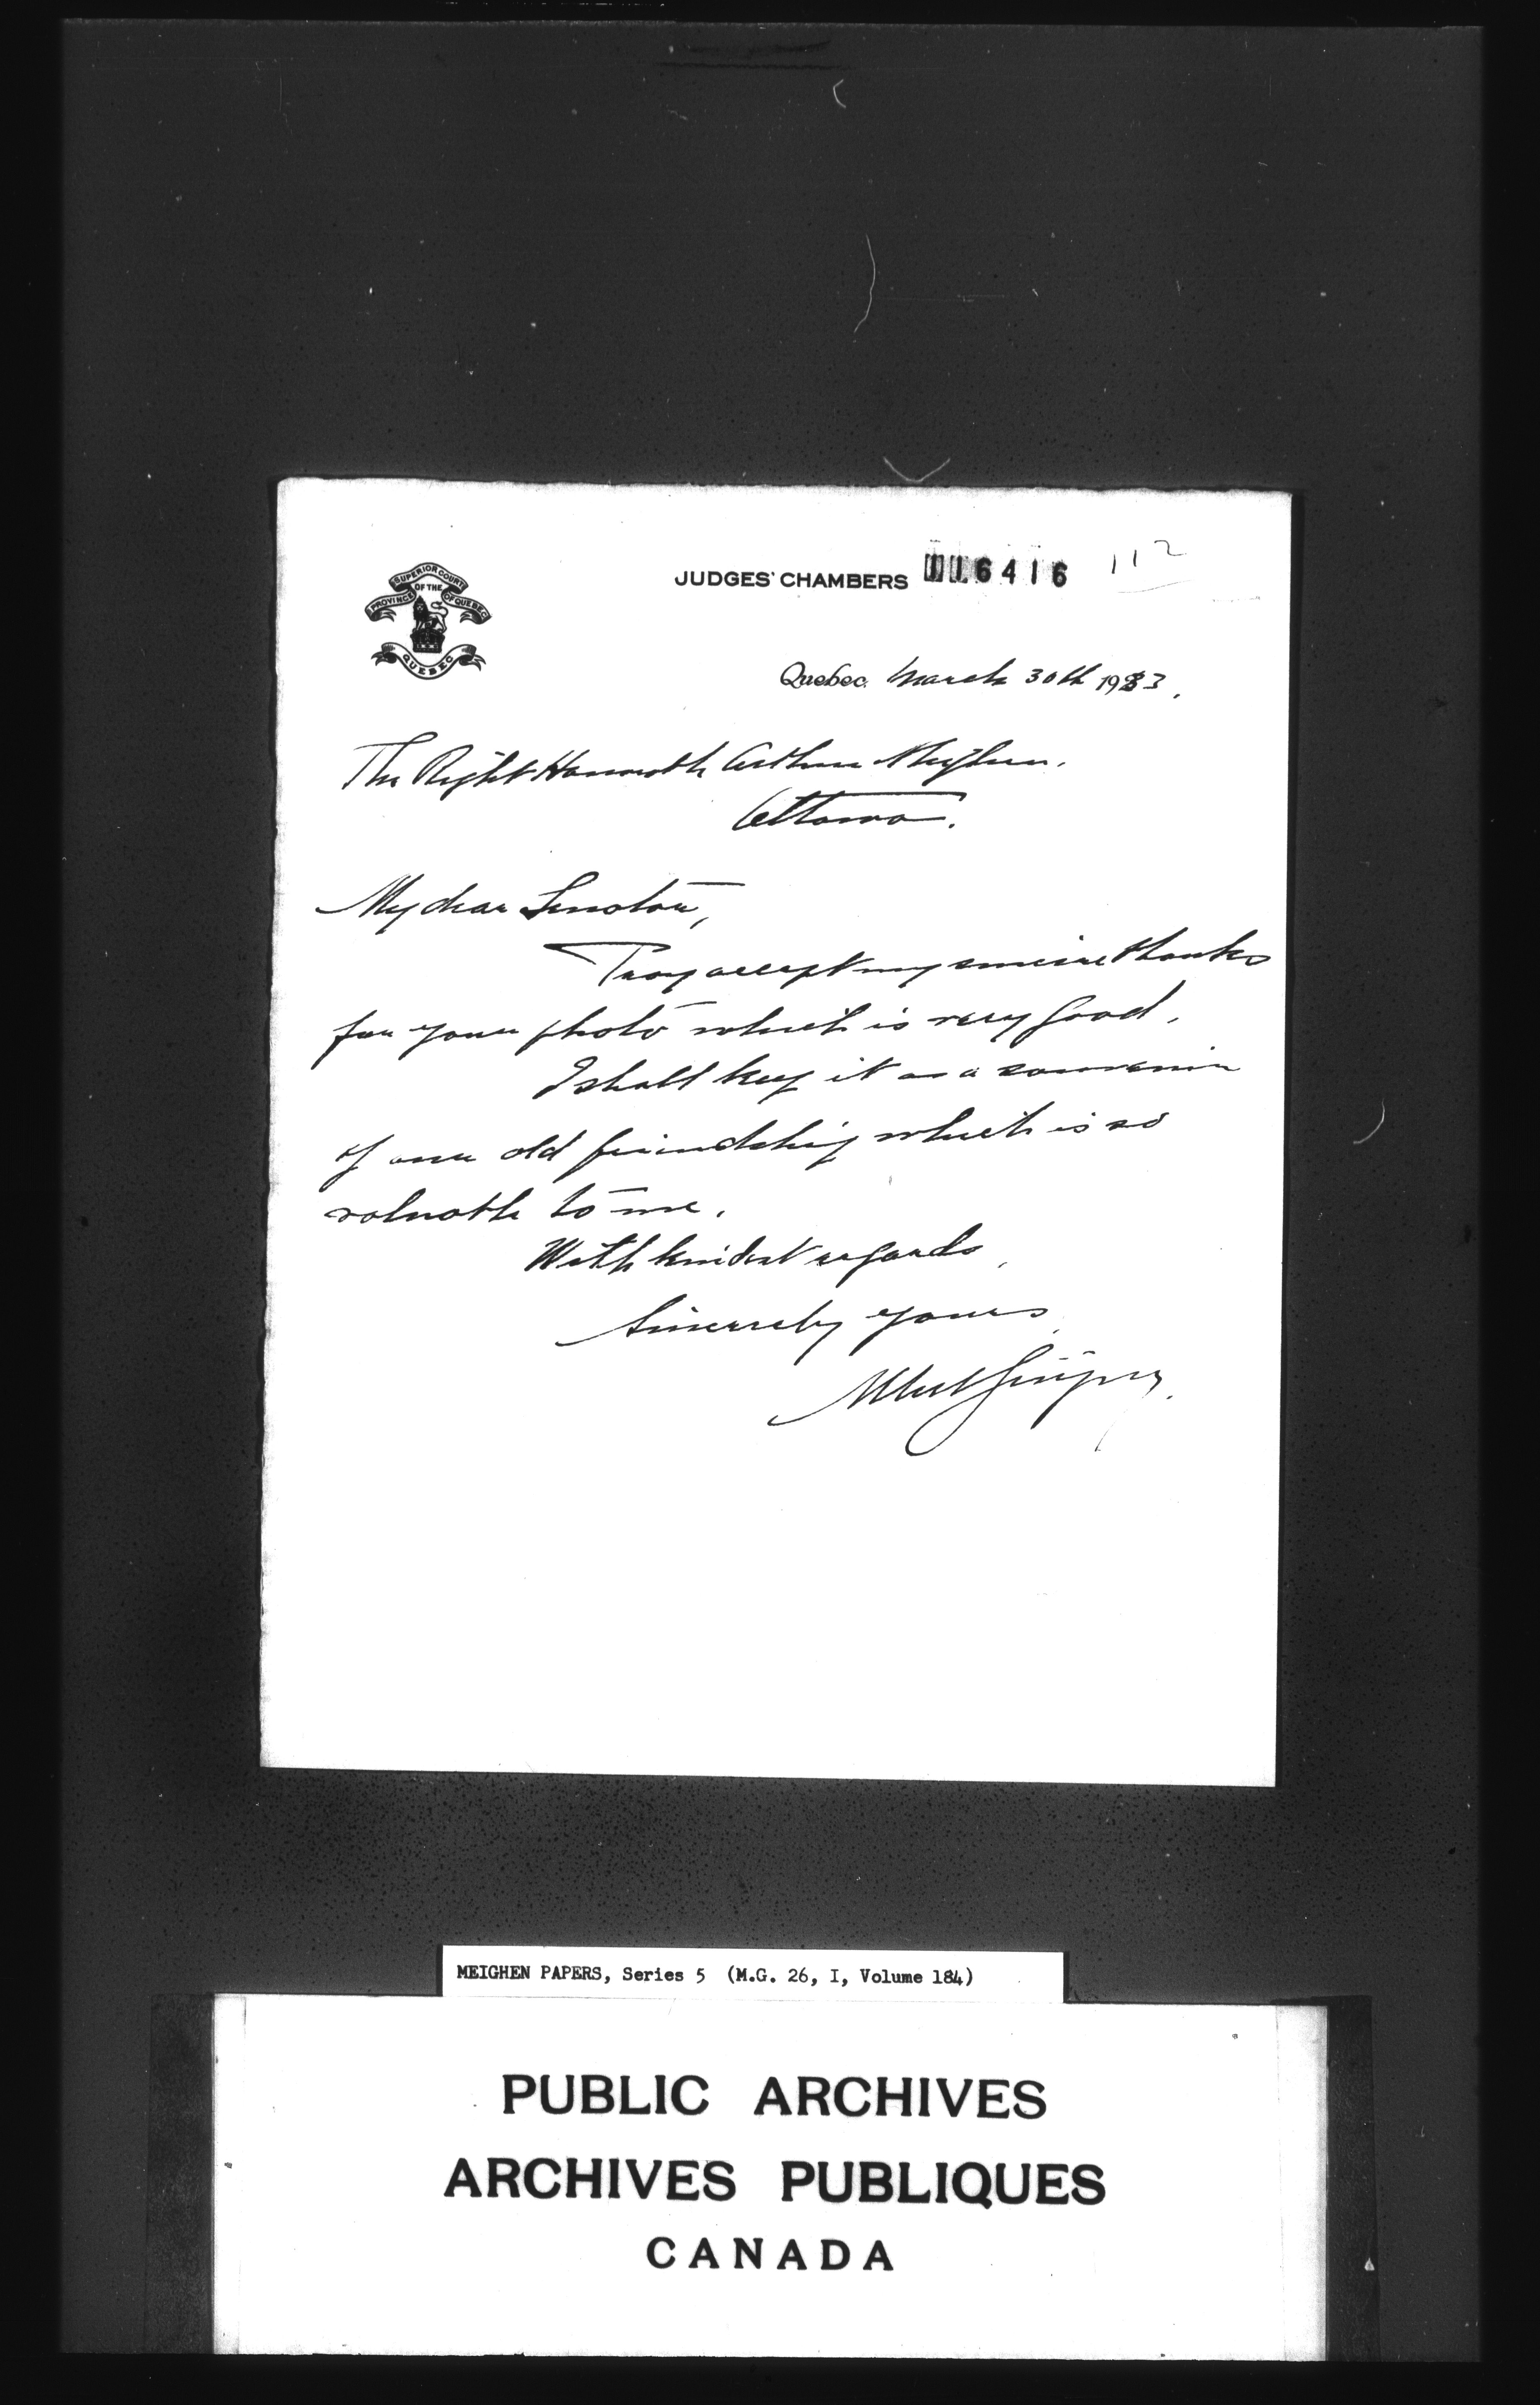 SUPERIOR COURT
OF THE
PROVINCE OF QUEBEC
QUEBEC
JUDGES' CHAMBERS 116416 112
Quebec March 30th 1933.
The Right Honorable Arthur Meighen.
Ottawa.
My dear Senator,
Pray accept my sincere thanks
for your photo which is very good.
I shall keep it as a souvenir
of our old friendship which is so
valuable to me.
With kindest regards,
Sincerely yours,
Albert Sévigny.
MEIGHEN PAPERS, Series 5 (M.G. 26, I, Volume 184)
PUBLIC ARCHIVES
ARCHIVES PUBLIQUES
CANADA